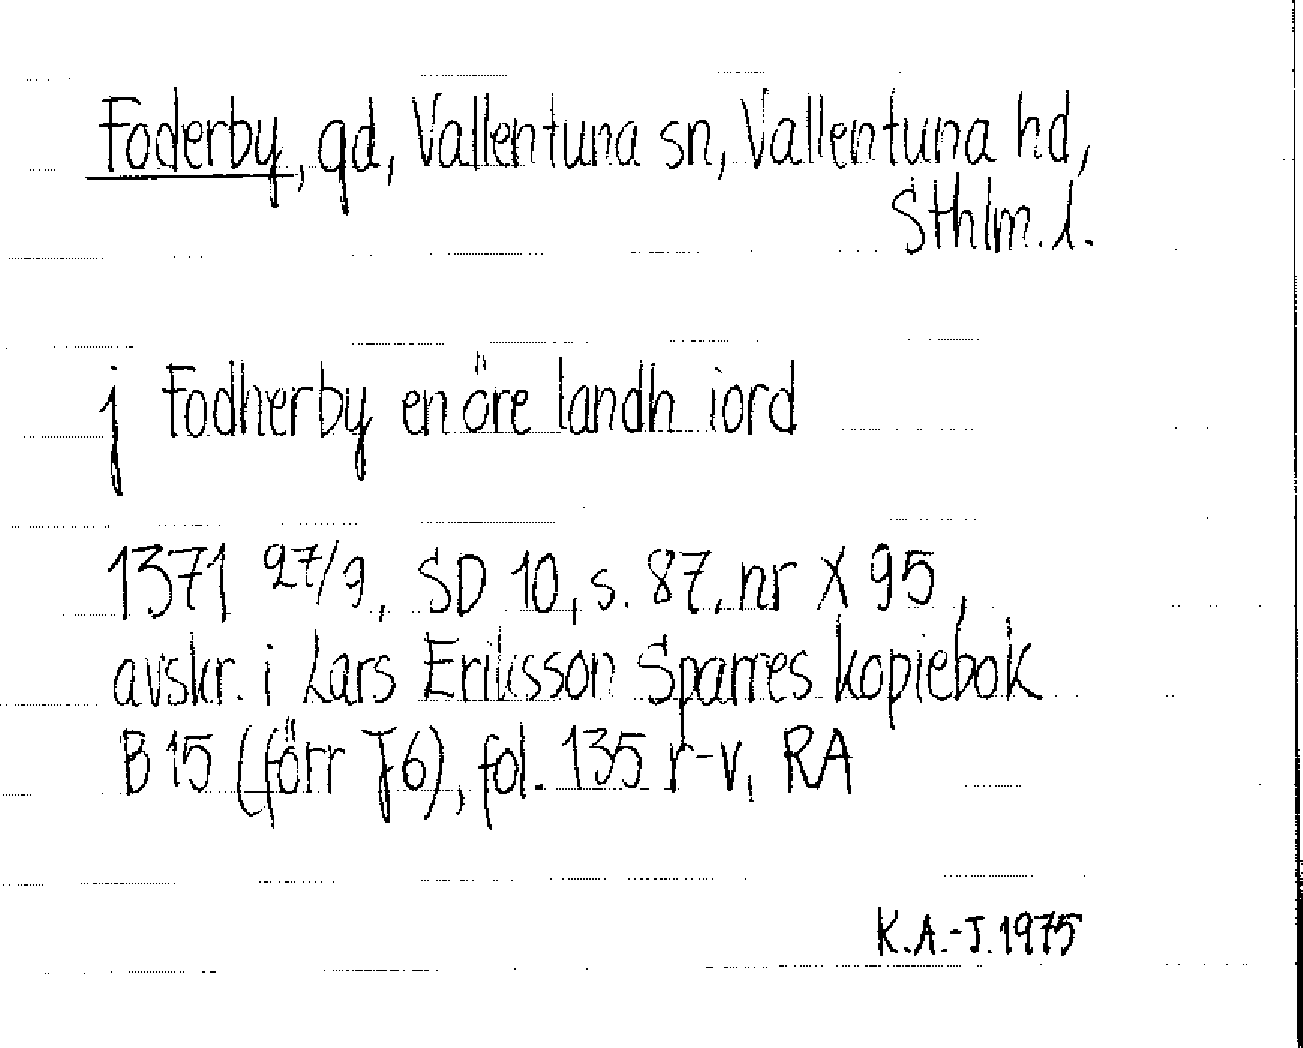 Foderby, gd, Vallentuna sn, Vallentuna hd,
Sthlm. l.
j Fodherby en öre landh iord
1371 27/9, SD 10, s. 87, nr X 95,
avskr. i Lars Eriksson Sparres kopiebok
B 15 (förr J 6), fol. 135 r-v, RA
K.A.-J. 1975